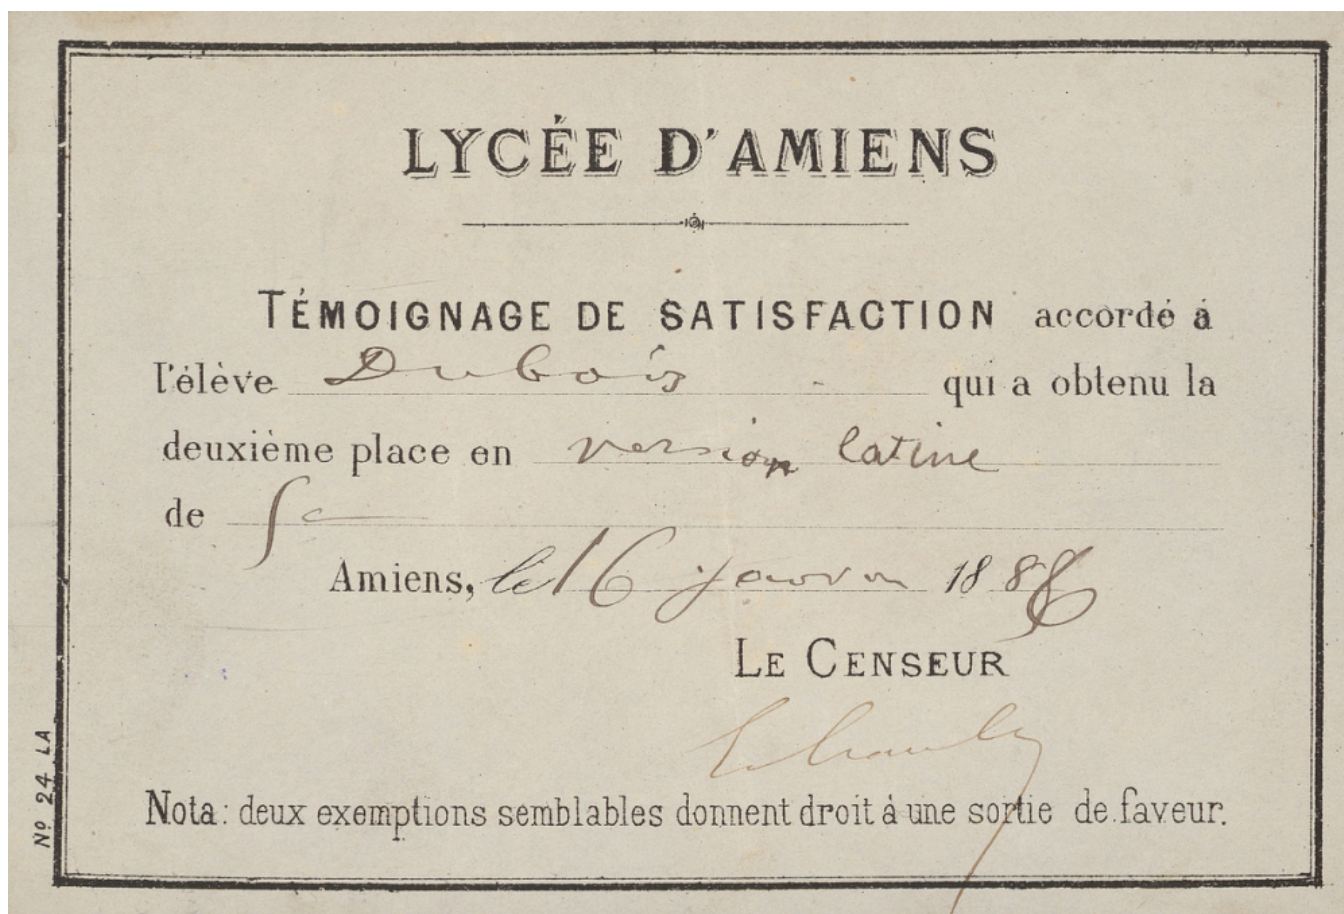 LYCÉE D'AMIENS
TÉMOIGNAGE DE SATISFACTION accordé à
l'élève Dubois qui a obtenu la
deuxième place en version latine
de
Amiens, le 16 janvier 188
LE CENSEUR
Nota: deux exemptions semblables donnent droit à une sortie de faveur.
Nº 24 LA